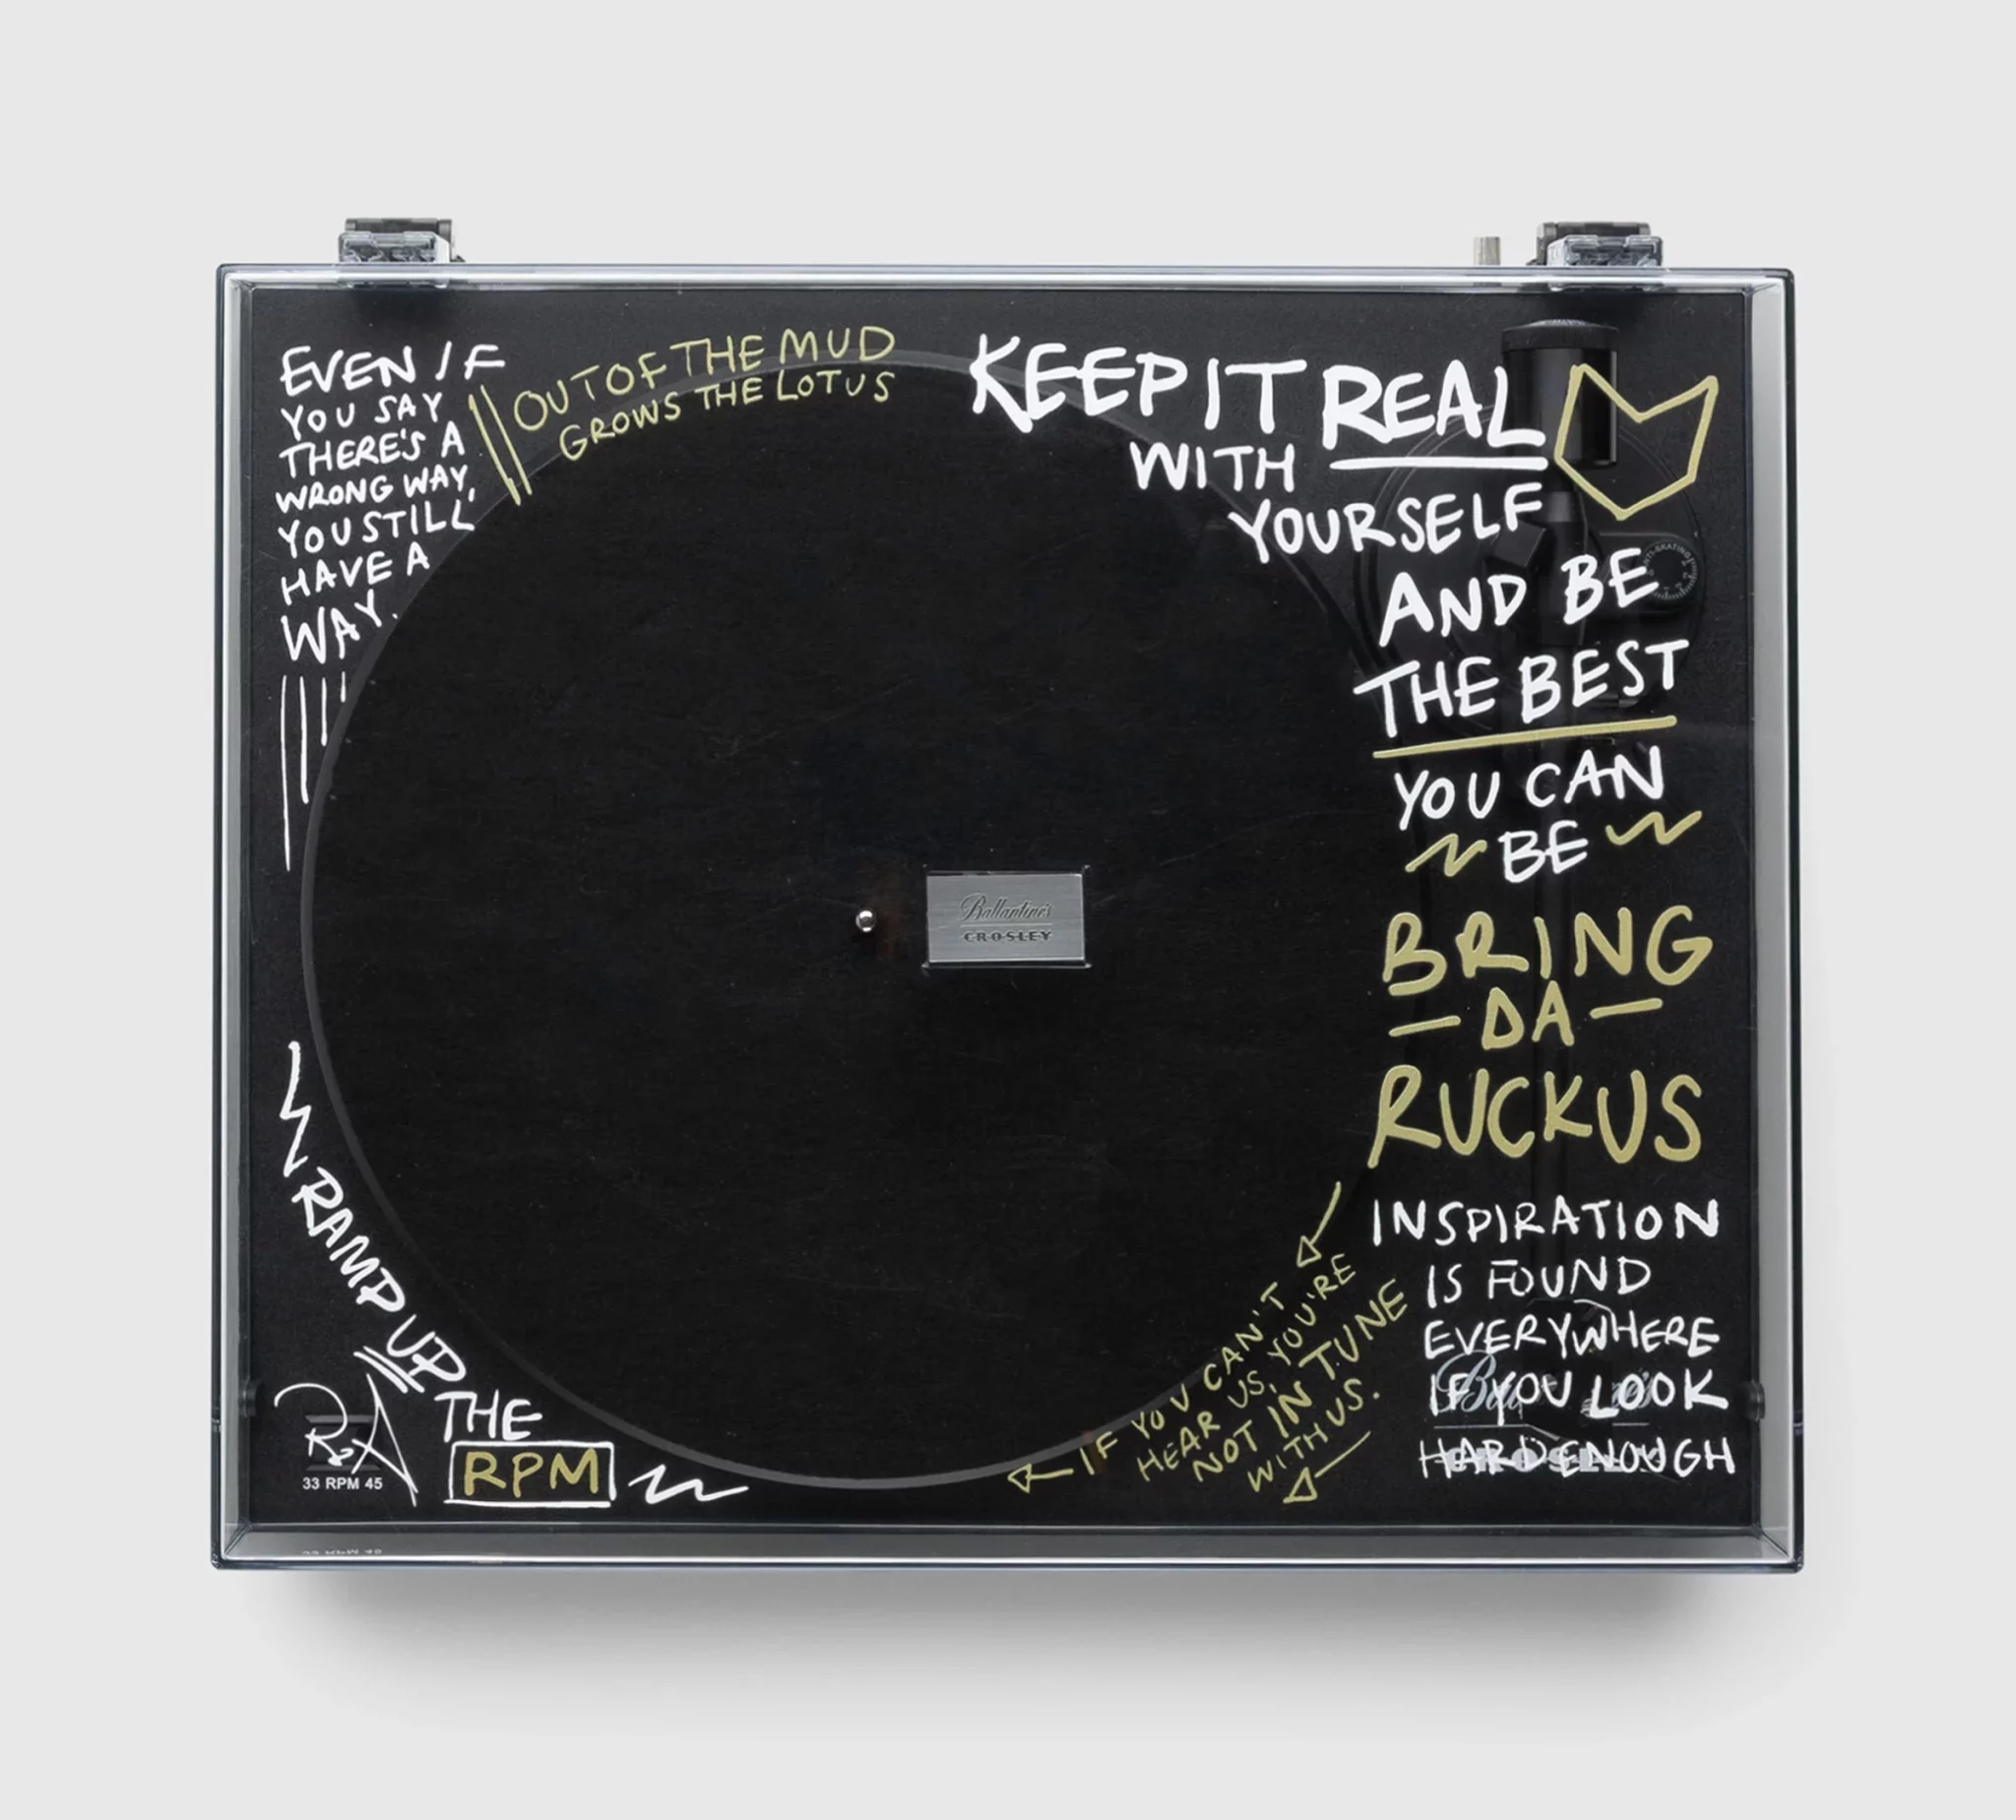 EVEN IF
YOU SAY
THERE'S A
WRONG WAY,
YOU STILL
HAVE A
WAY.
OUT OF THE MUD
GROWS THE LOTUS
KEEP IT REAL
WITH
YOURSELF
AND BE
THE BEST
YOU CAN
BE
BRING
DA
RUCKUS
INSPIRATION
IS FOUND
EVERYWHERE
IF YOU LOOK
HARD ENOUGH
Ballantine's
CROSLEY
RAMP UP
THE
RPM
33 RPM 45
IF YOU CAN'T
HEAR US, YOU'RE
NOT IN TUNE
WITH US.